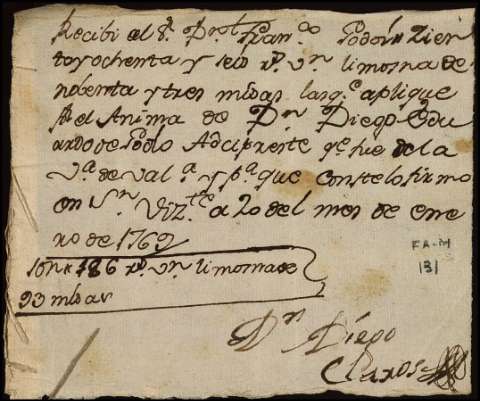 Recibi del Sr. Dn. Fran.co Godoi Zien
to y ochenta y seis Rs. Vn. limosna de
nobenta y tres misas las q.e aplique
Pr. el Anima de Dn. Diego Edu
ardo de Adciprente q.e fue de la
V.a de Val.a y p.a que conste lo firmo
en Sn. Viz.te a 20 del mes de ene
ro de 1769
Son 186 rs. vn. limosna de
93 misas
Dn. Diego
Claros
FA-M
131